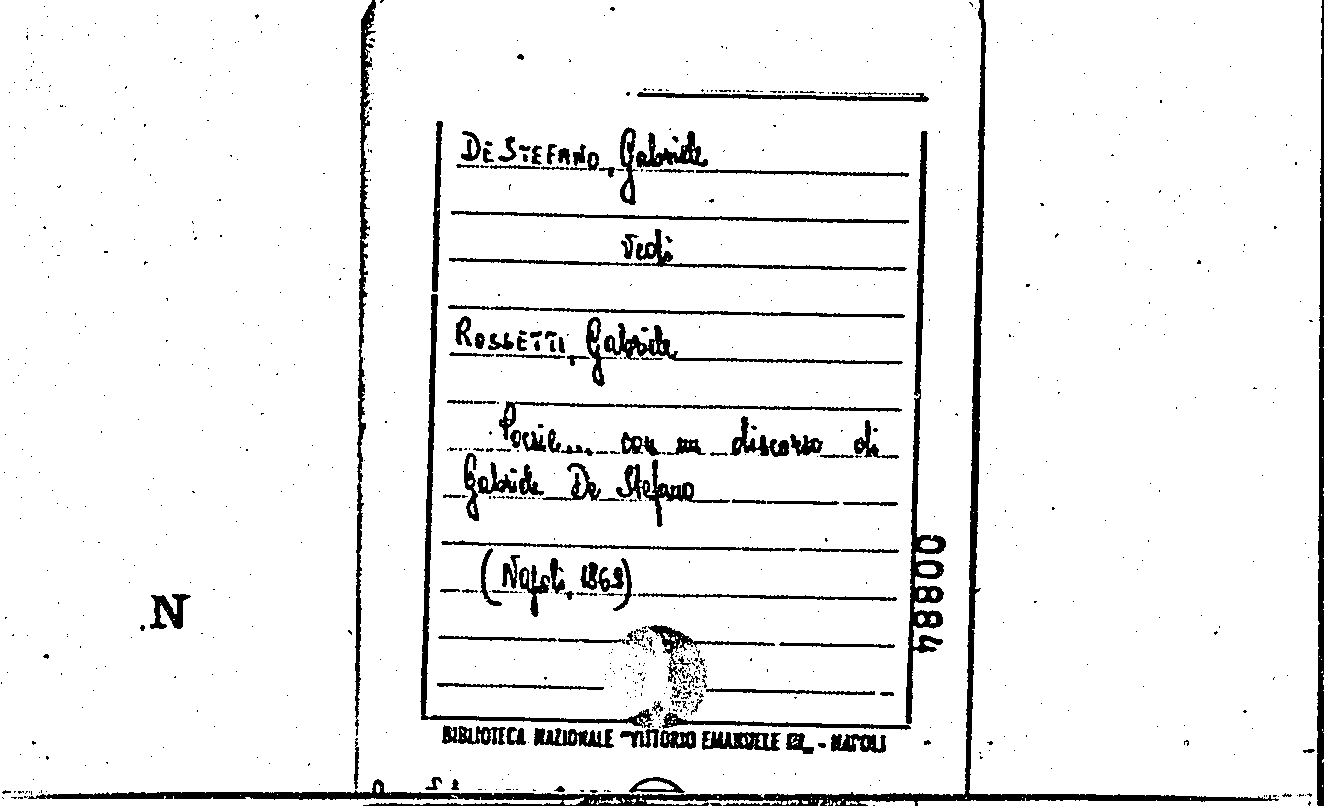 DE STEFANO, Gabriele
vedi
ROSSETTI, Gabriele
Poesie... con un discorso di
Gabriele De Stefano
(Napoli, 1863)
00884
.N
BIBLIOTECA NAZIONALE "VITTORIO EMANUELE III„ - NAPOLI